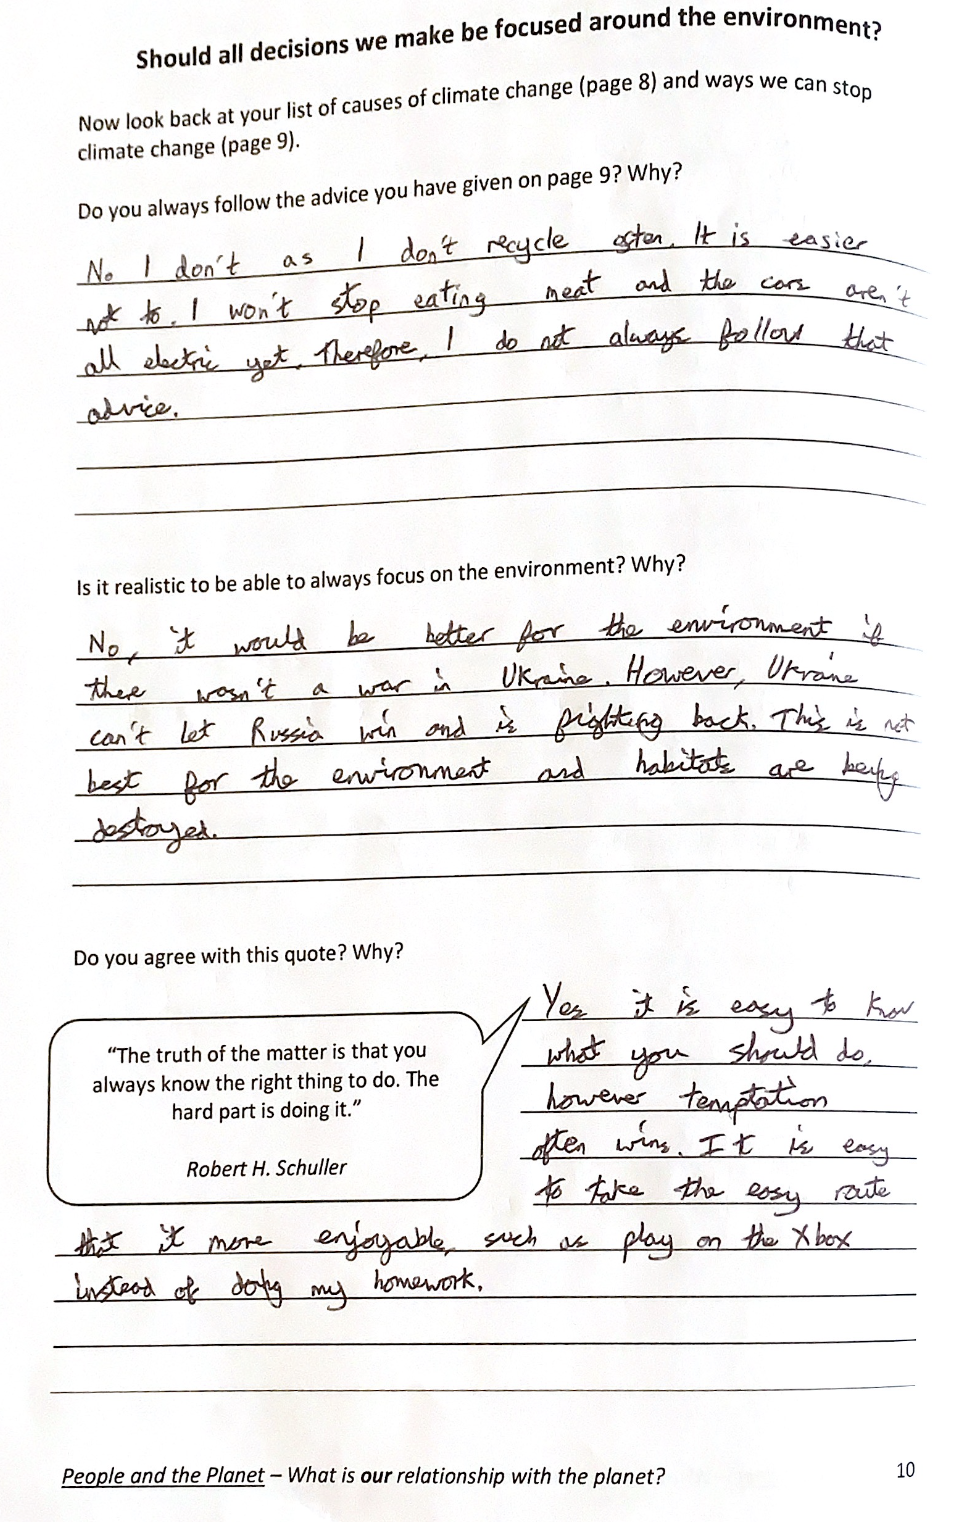 Should all decisions we make be focused around the environment?
Now look back at your list of causes of climate change (page 8) and ways we can stop
climate change (page 9).
Do you always follow the advice you have given on page 9? Why?
No I don't as I don't recycle often. It is easier
not to. I won't stop eating meat and the cars aren't
all electric yet. Therefore, I do not always follow that
advice.
Is it realistic to be able to always focus on the environment? Why?
No, it would be better for the environment if
there wasn't a war in Ukraine. However, Ukraine
can't let Russia win and is fighting back. This is not
best for the environment and habitats are being
destroyed.
Do you agree with this quote? Why?
"The truth of the matter is that you
always know the right thing to do. The
hard part is doing it."
Robert H. Schuller
Yes it is easy to know
what you should do,
however temptation
often wins. It is easy
to take the easy route
that it more enjoyable, such as play on the Xbox
instead of doing my homework.
People and the Planet – What is our relationship with the planet?
10